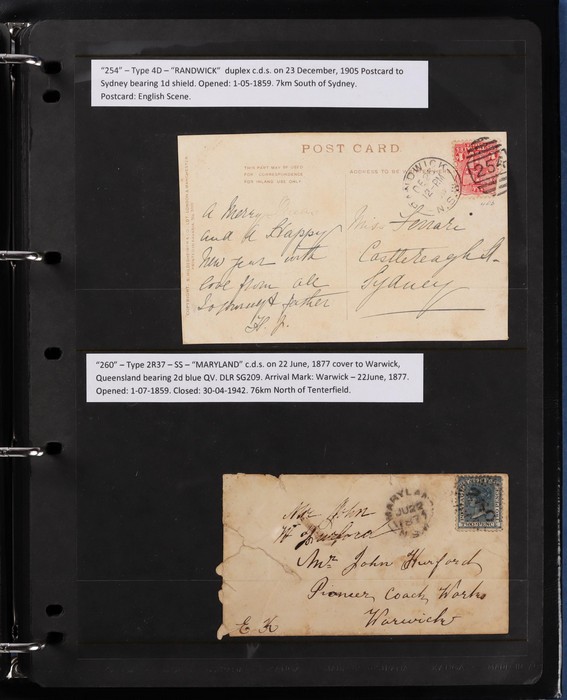 "254" – Type 4D – "RANDWICK" duplex c.d.s. on 23 December, 1905 Postcard to
Sydney bearing 1d shield. Opened: 1-05-1859. 7km South of Sydney.
Postcard: English Scene.
POST CARD.
THIS POST MAY BE USED
FOR CORRESPONDENCE
FOR INLAND USE ONLY
ADDRESS TO BE
A Merry
and a Happy
New year with
love from all
H. J.
Miss Ferrari
Castlereagh St.
Sydney
"260" – Type 2R37 – SS – "MARYLAND" c.d.s. on 22 June, 1877 cover to Warwick,
Queensland bearing 2d blue QV. DLR SG209. Arrival Mark: Warwick – 22June, 1877.
Opened: 1-07-1859. Closed: 30-04-1942. 76km North of Tenterfield.
MARYLAND
JU 22
1877
N.S.W
John
Mr. John Hurford
Pioneer Coach Works
Warwick
E. K